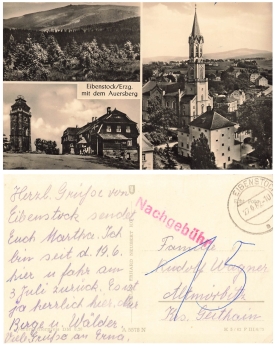 Eibenstock/Erzg.
mit dem Auersberg
Herzl. Grüße von
Eibenstock sendet
Euch Martha. Ich
bin seit d. 19.6.
hier u fahr am
3 Juli zurück. Es ist
ja herrlich hier, die
Berge u. Wälder.
Viele Grüße an Erna,
Nachgebühr
EIBENSTOCK
15
Familie
Rudolf Wagner
Krs. Geithain